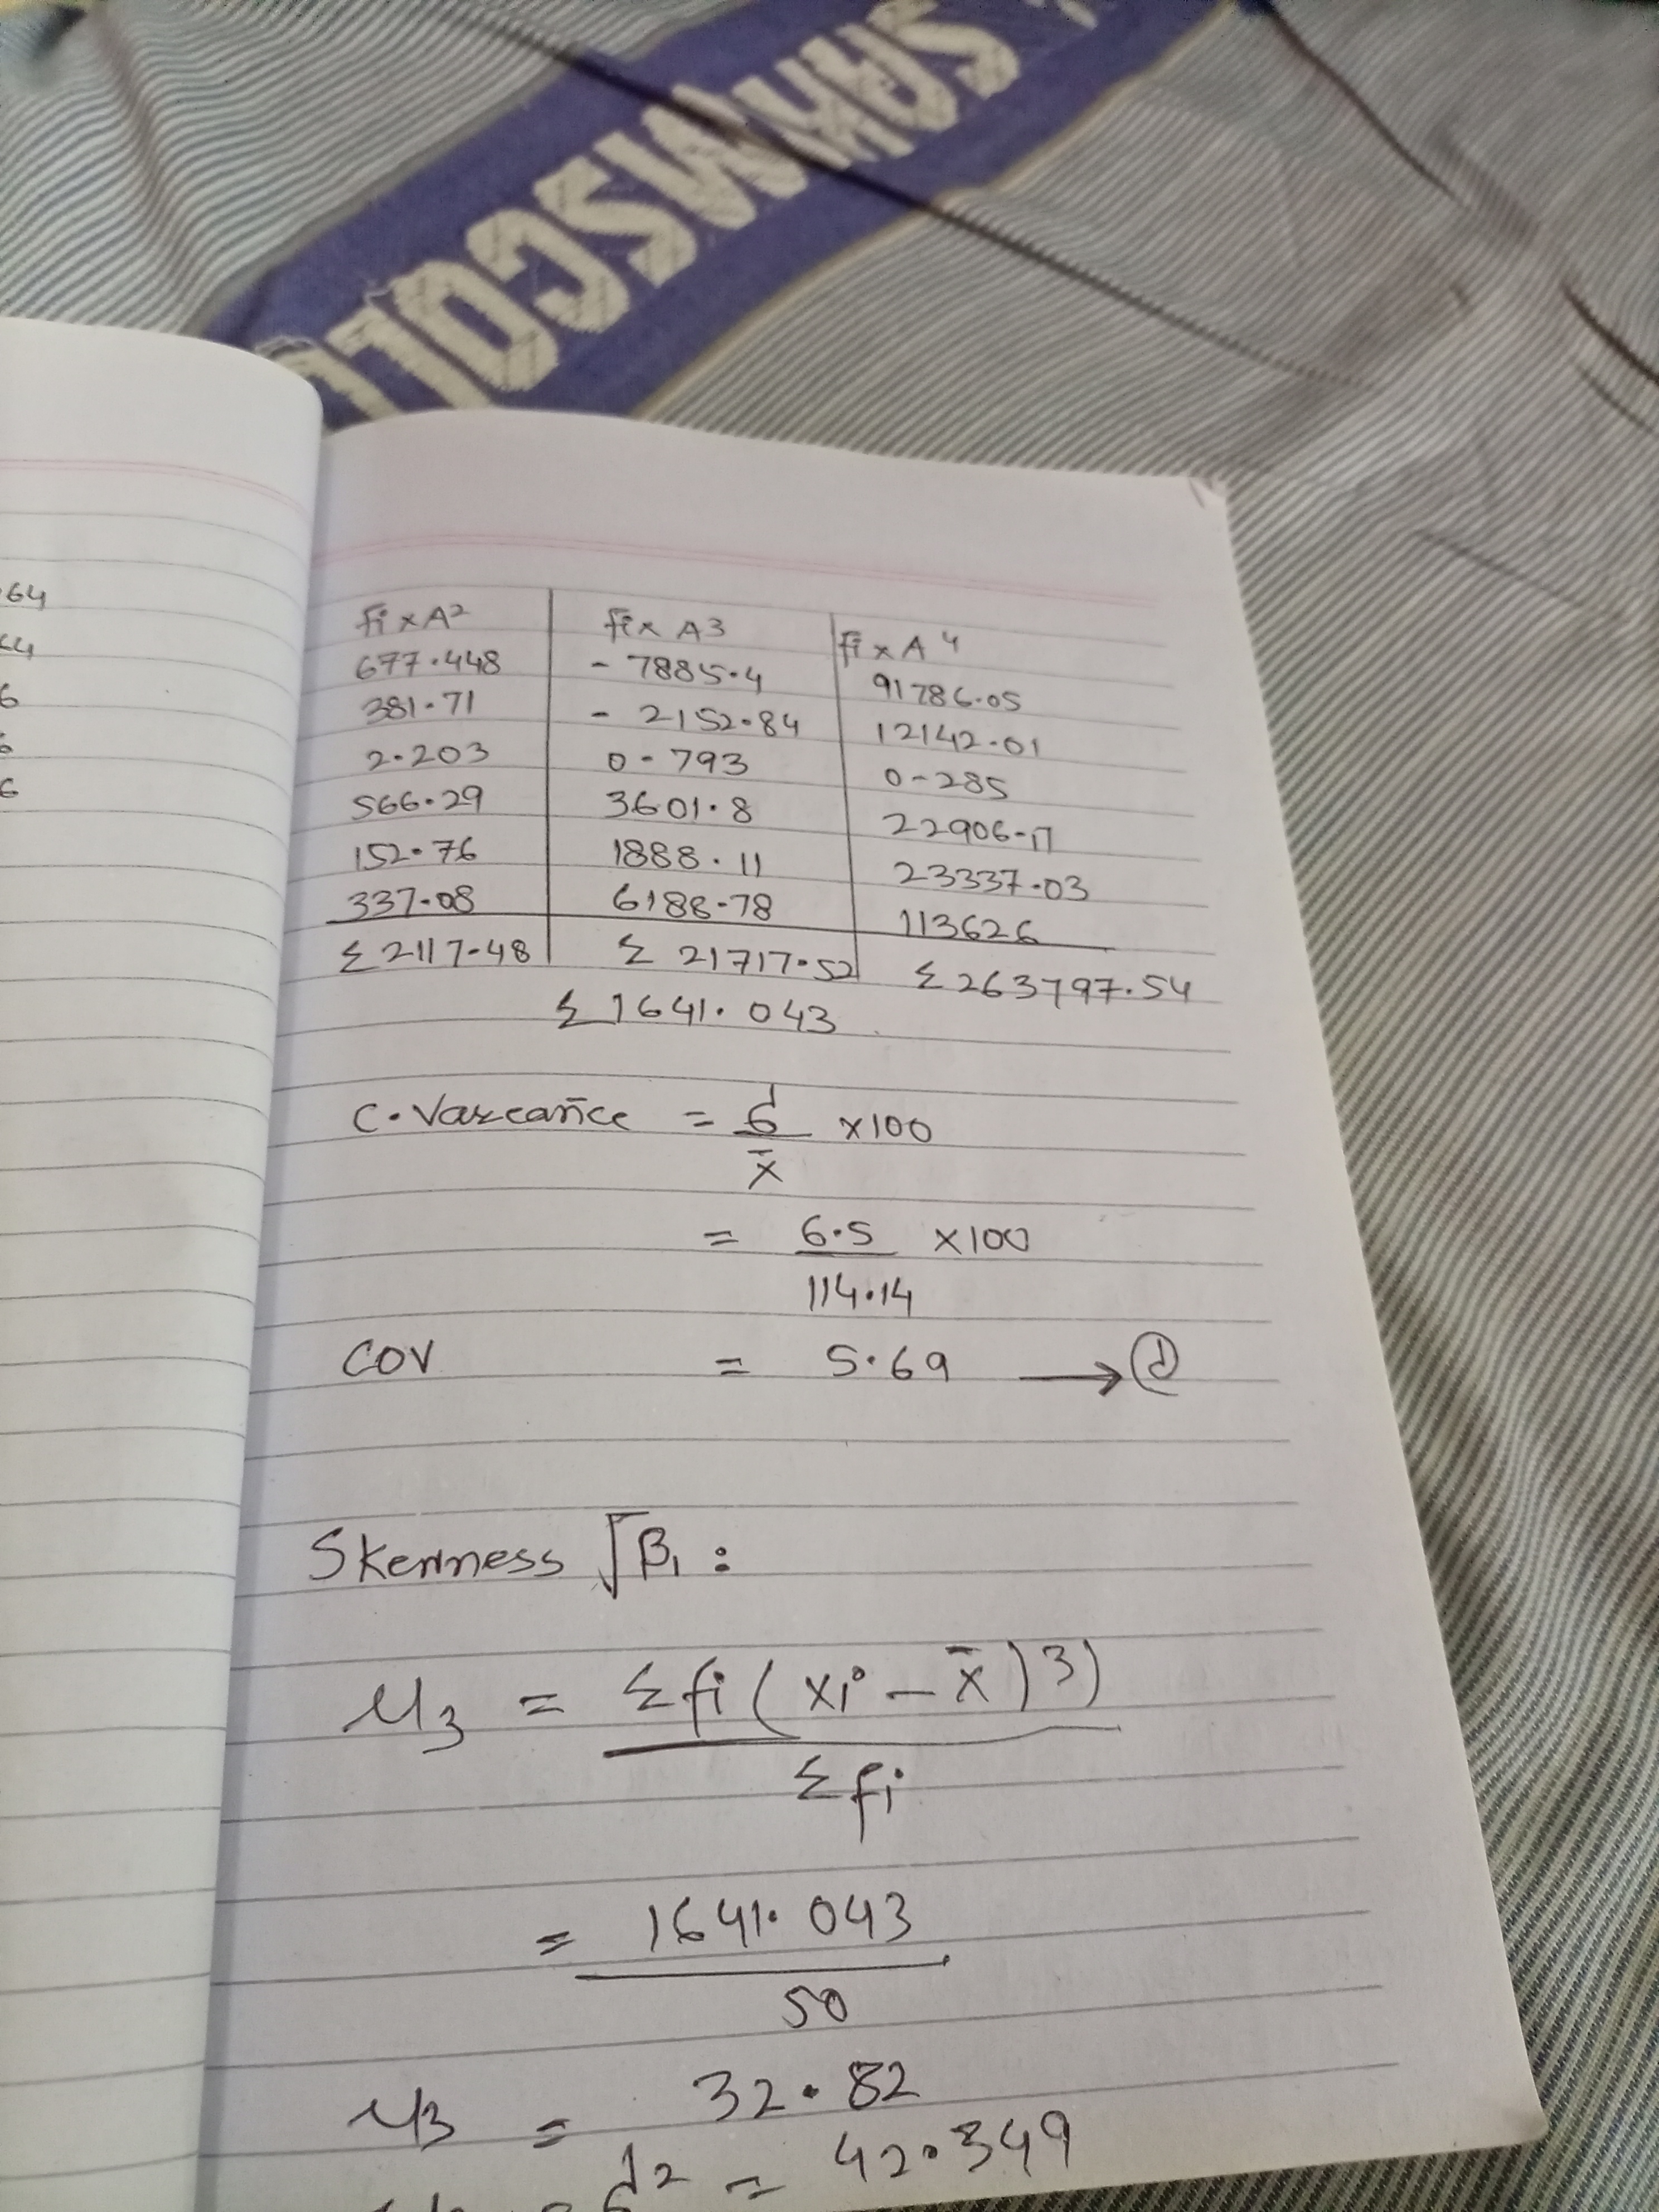 SARMISCOLL
.64
64
6
6
6
fi x A2 | fi x A3 | fi x A4
677.448 | - 7885.4 | 91786.05
381.71 | - 2152.84 | 12142.01
2.203 | 0.793 | 0.285
566.29 | 3601.8 | 22906.17
152.76 | 1888.11 | 23337.03
337.08 | 6188.78 | 113626
Σ 2117.48 | Σ 21717.52 | Σ 263797.54
Σ 1641.043
C.Vareance = σ/x̄ x100
= 6.5/114.14 x100
COV = 5.69 → d
Skenness √β1 :
μ3 = Σfi(xi - x̄)3)
Σfi
= 1641.043
50
μ3 = 32.82
σ2 = 42.349